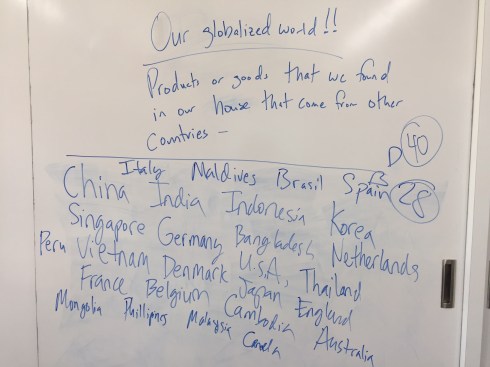 Our globalized world!!
Products or goods that we found
in our house that come from other
Countries –
D 40
Italy Maldives Brasil Spain B 28
China India Indonesia Korea
Singapore Germany Bangladesh Netherlands
Peru Vietnam Denmark U.S.A, Thailand
France Belgium Japan England
Mongolia Phillipines Malaysia Cambodia Australia
Canada